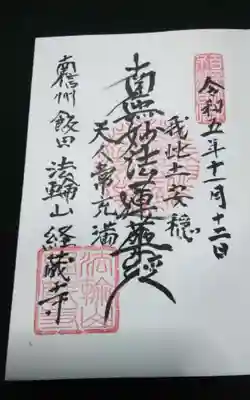 令和五年十一月十二日
我此土安穏
南無妙法蓮華経
天人常充満
南信州飯田 法輪山 経蔵寺